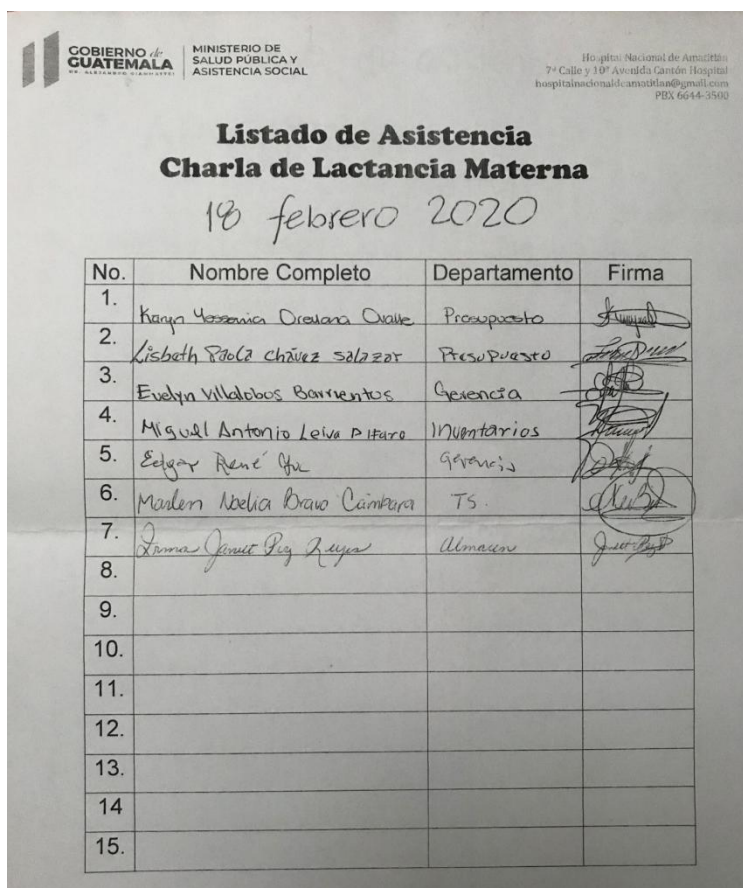 GOBIERNO de
GUATEMALA
DR. ALEJANDRO GIAMMATTEI
MINISTERIO DE
SALUD PÚBLICA Y
ASISTENCIA SOCIAL
Hospital Nacional de Amatitlán
7ª Calle y 10ª Avenida Cantón Hospital
hospitalnacionaldeamatitlan@gmail.com
PBX 6644-3500
Listado de Asistencia
Charla de Lactancia Materna
18 febrero 2020
No. Nombre Completo Departamento Firma
1. Karyn Yessenia Orellana Ovalle Presupuesto
2. Lisbeth Paola Chávez Salazar Presupuesto
3. Evelyn Villalobos Barrientos Gerencia
4. Miguel Antonio Leiva Pifaro Inventarios
5. Edgar René Gerencia
6. Marlen Noelia Bravo Cámbara TS.
7. Irma Janett Reyes Almacen
8.
9.
10.
11.
12.
13.
14
15.